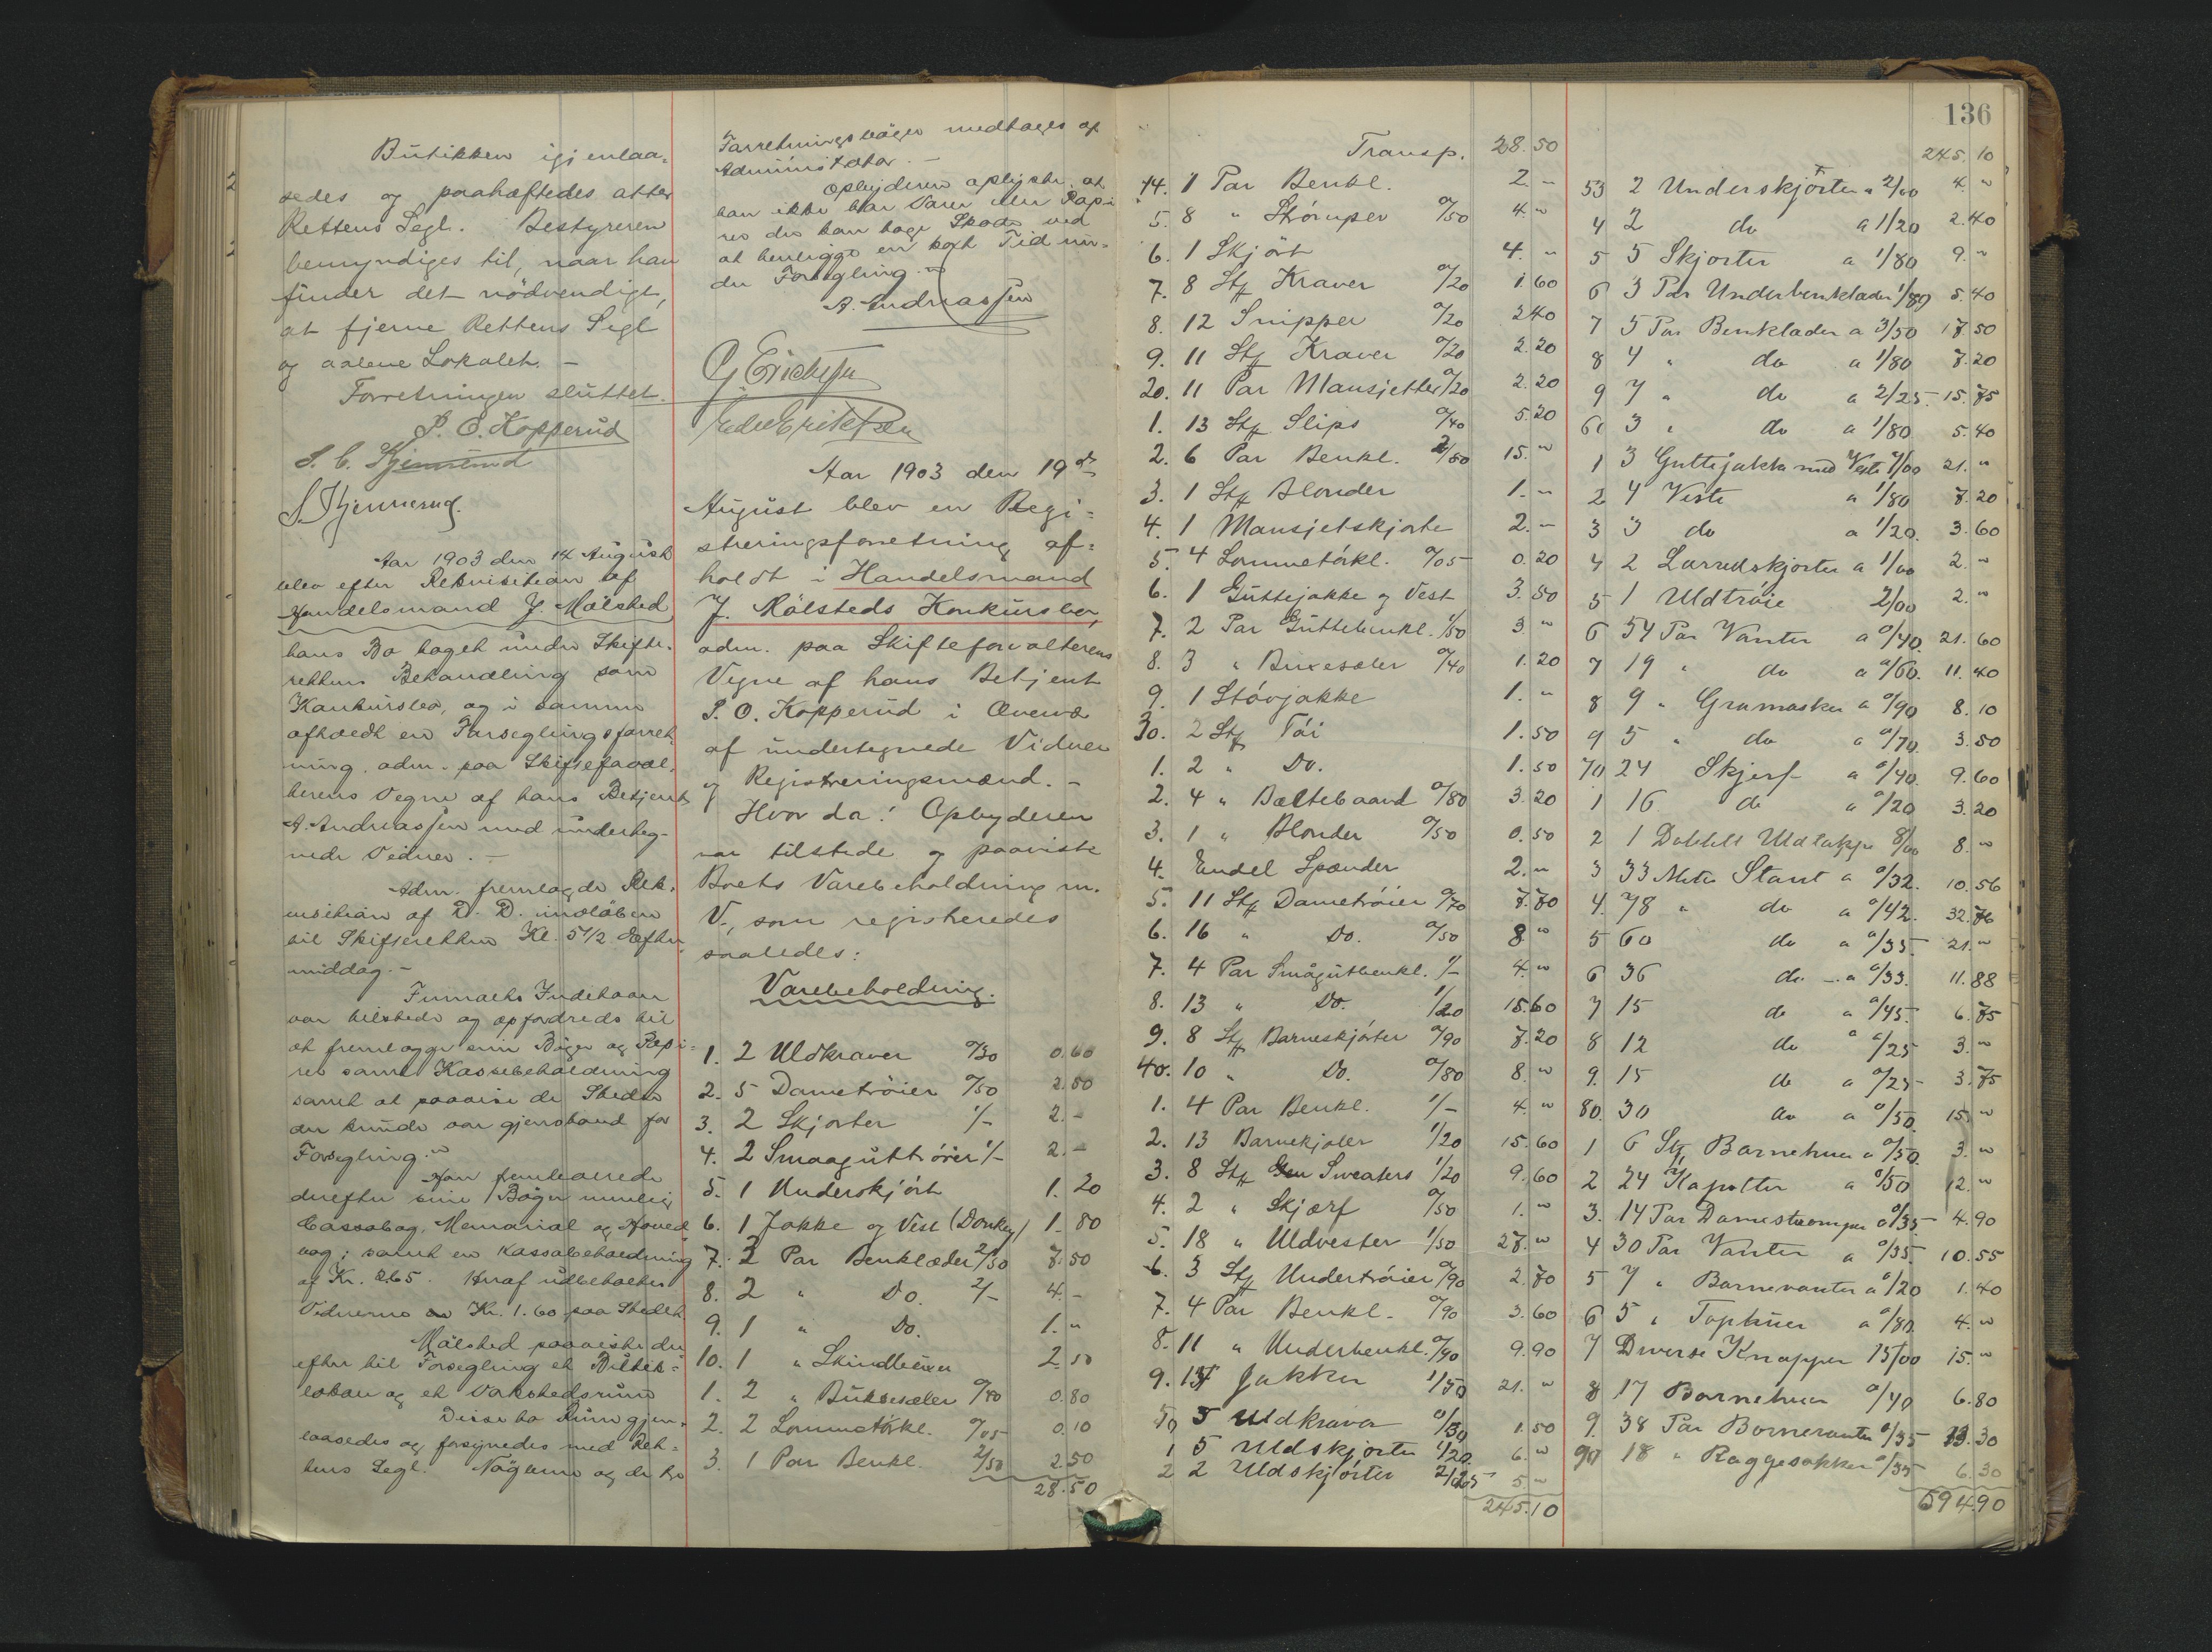 Butikken igjenlaa-
sedes og paahæftedes atter
Rettens Segl. Bestyreren
bemyndiges til, naar han
finder det nödvendigt,
at fjerne Rettens Segl
og aabne Lokalet. -
Forretningen sluttet.
P. O. Kopperud
Aar 1903 den 14 August
blev efter Rekvisition af
Handelsmand J. Mölsted
hans Bo taget under Skifte-
rettens Behandling som
Konkursbo, og i samme
afholdt en Forseglingsforret-
ning, adm. paa Skifteforval-
terens Vegne af hans Betjent
A. Andreassen med underteg-
nede Vidner. -
Adm. fremlagde Rek-
visition af D. D. indløben
til Skifteretten Kl. 5 1/2 Efter-
middag. -
Firmaets Indehaver
var tilstede og opfordredes til
at fremlægge sine Böger og Papi-
rer samt Kassebeholdning
samt at paavise de Steder
der kunde var gjenstand for
Forsegling.
Han fremleverede
derefter sine Böger nemlig
Cassabog, Memorial og Hoved
bog; samt en Kassabeholdning
af Kr. 265. Heraf udbetaltes
Vidnerne Kr. 1.60 paa Stedet
Mölsted paaviste der
efter til Forsegling et Butik-
lokale og et Værkstedsrum
Disse to Rum gjen-
laasedes og forsynedes med Ret-
tens Segl. Nöglerne og de to
Forretningsböger medtages af
Administrator. -
Opbyderen oplyste at
han ikke har Varer eller Papi-
rer der kan tage Skade ved
at henligge en kort Tid un-
der Forsegling.
A. Andreassen
G. Erichsen
Aar 1903 den 19de
August blev en Regi-
streringsforretning af-
holdt i Handelsmand
J. Mölsteds Konkursbo,
adm. paa Skifteforvalterens
Vegne af hans Betjent
P. O. Kopperud i Overvær
af undertegnede Vidner
og Registreringsmænd. -
Hvor da: Opbyderen
var tilstede og paaviste
Boets Varebeholdning m.
V., som registreredes
saaledes:
Varebeholdning.
1. 2 Uldkraver 0/30 0.60
2. 5 Dametröier 0/50 2.50
3. 2 Skjorter 1/- 2.-
4. 2 Smaaguttröier 1/- 2.-
5. 1 Underskjört 1.20
6. 1 Jakke og Vest (Donkey) 1.80
7. 3 Par Benklæder 2/50 7.50
8. 2 " Do. 2/- 4.-
9. 1 " Do. 1."
10. 1 " Skindbuxer 2.50
1. 2 " Buksesæler 0/40 0.80
2. 2 Lommetörkl. 0/05 0.10
3. 1 Par Benkl. 2/50 2.50
28.50
136
Transp. 28.50
14. 1 Par Benkl. 2.-
5. 8 " Strömper 0/50 4."
6. 1 Skjört 4.-
7. 8 Stk Kraver 0/20 1.60
8. 12 Snipper 0/20 2.40
9. 11 Stk Kraver 0/20 2.20
20. 11 Par Mansjetter 0/20 2.20
1. 13 Stk Slips 0/40 5.20
2. 6 Par Benkl. 2/50 15."
3. 1 Stk Blonder 1.-
4. 1 Mansjetskjorte 2.-
5. 4 Lommetörkl. 0/05 0.20
6. 1 Guttejakke og Vest 3.50
7. 2 Par Guttebenkl. 1/50 3."
8. 3 " Buxesæler 0/40 1.20
9. 1 Stövjakke 1."
30. 2 Stk Töi 1.50
1. 2 " Do. 1.50
2. 4 " Bæltebaand 0/80 3.20
3. 1 " Blonder 0/50 0.50
4. Endel Spænder 2.-
5. 11 Stk Dametröier 0/70 7.70
6. 16 " Do. 0/50 8"
7. 4 Par Smågutbenkl. 1/- 4."
8. 13 " Do. 1/20 15.60
9. 8 Stk Barneskjörter 0/90 7.20
40. 10 " Do. 0/80 8."
1. 4 Par Benkl. 1/- 4."
2. 13 Barnekjoler 1/20 15.60
3. 8 Stk Sweaters 1/20 9.60
4. 2 " Skjærf 0/50 1."
5. 18 " Uldvester 1/50 27."
6. 3 Stk Undertröier 0/90 2.70
7. 4 Par Benkl. 0/90 3.60
8. 11 " Underbenkl. 0/90 9.90
9. 14 Jakker 1/50 21."
50 5 Uldkraver 0/30 1.50
1 5 Uldskjorter 1/20 6."
2 2 Uldskjörter 2/25 5."
245.10
245.10
53 2 Underskjörter a 2/00 4."
4 2 do a 1/20 2.40
5 5 Skjorter a 1/80 9."
6 3 Par Underbenklæder 1/80 5.40
7 5 Par Benklæder a 3/50 17.50
8 4 " do a 1/80 7.20
9 7 " do a 2/25 15.75
60 3 " do a 1/80 5.40
1 3 Guttejakker med Veste 7/00 21."
2 4 Veste a 1/80 7.20
3 3 do a 1/20 3.60
4 2 Lærredskjorter a 1/00 2.-
5 1 Uldtröie 2/00 2."
6 54 Par Vanter a 0/40 21.60
7 19 " do a 0/60. 11.40
8 9 " Gramasker a 0/90 8.10
9 5 " do a 0/70 3.50
70 24 Skjerf a 0/40 9.60
1 16 do a 0/20 3.20
2 1 Dobbelt Uldtæppe 8/00 8."
3 33 Meter Stout a 0/32. 10.56
4. 78 " do a 0/42. 32.76
5 60 do a 0/35 21."
6 36 do a 0/33. 11.88
7 15 do a 0/45. 6.75
8 12 do a 0/25 3."
9. 15 do a 0/25 3.75
80. 30 do a 0/50. 15."
1 6 Stk Barnehuer a 0/50 3."
2 24 Kapotter a 0/50 12."
3. 14 Par Dameströmper a 0/35 4.90
4 30 Par Vanter a 0/35. 10.55
5 7 " Barnevanter a 0/20 1.40
6 5 " Tophuer a 0/80 4."
7 Diverse Knapper 15/00 15."
8 17 Barnehuer 0/40 6.80
9. 38 Par Barnevanter 0/35 13.30
90 18 " Raggesokker 0/35 6.30
594.90